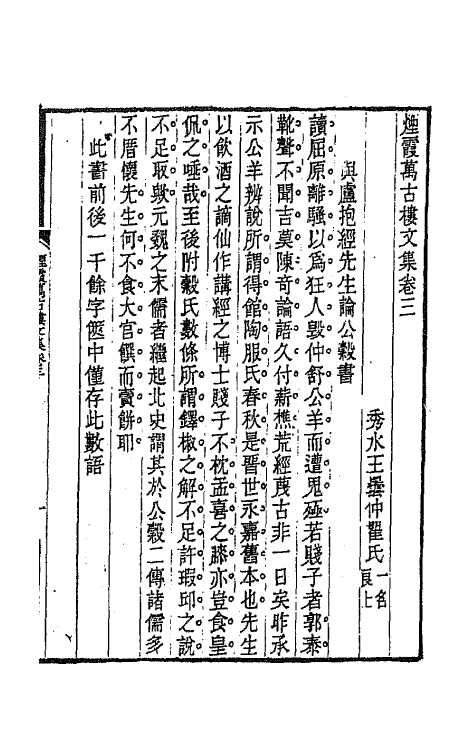 煙霞萬古樓文集卷三
秀水王曇仲瞿氏一名良士
與盧抱經先生論公穀書
讀屈原離騷以爲狂人毀仲舒公羊而遭鬼殛若賤子者郭泰
靴聲不聞吉莫陳奇論語久付薪樵荒經蔑古非一日矣昨承
示公羊辨說所謂得館陶服氏春秋是晉世永嘉舊本也先生
以飲酒之謫仙作講經之博士賤子不枕孟喜之膝亦豈食皇
侃之唾哉至後附穀氏數條所謂鐸椒之解不足許瑕卬之說
不足取歟元魏之末儒者繼起北史謂其於公穀二傳諸儒多
不厝懷先生何不食大官饌而賣餅耶
此書前後一千餘字匧中僅存此數語
煙霞萬古樓文集卷三
一